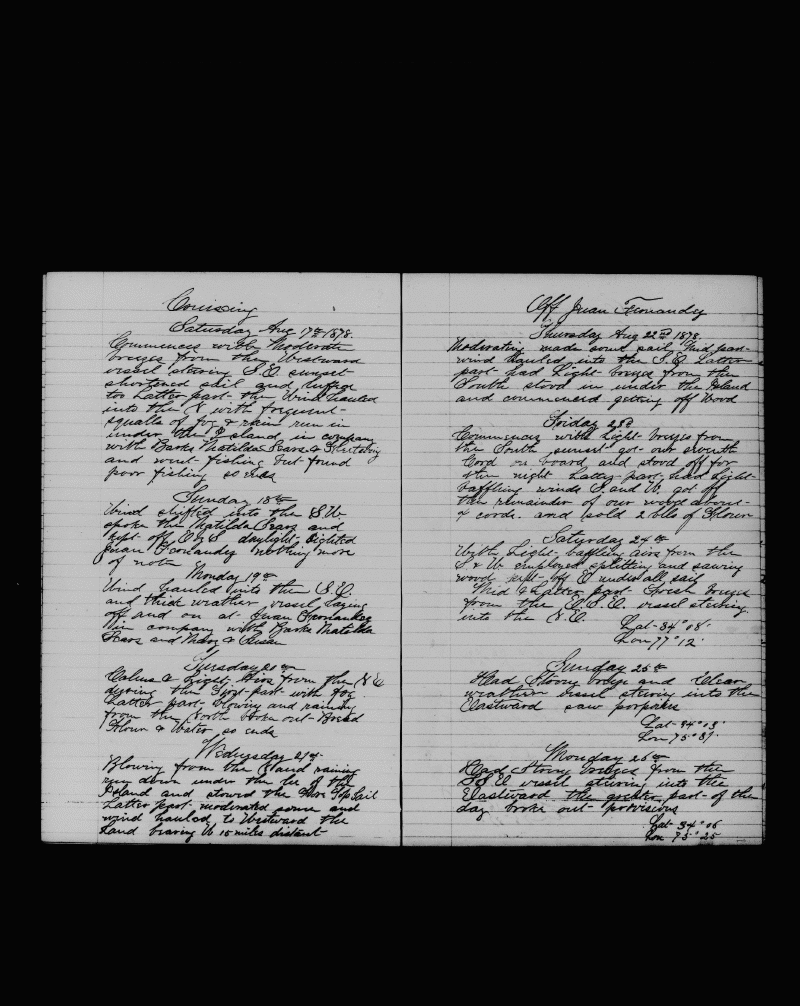 Cruising
Saturday Aug 17th 1878.
Commences with Moderate
breezes from the Westward
vessel steering S.E. sunset
shortened sail and luffed
too Latter part the Wind hauled
into the N with frequent
squalls of fog & rain run in
under the Island in company
with Barks Matilda Sears &
and went fishing but found
poor fishing so ends
Sunday 18th
Wind shifted into the S.W.
spoke the Matilda Sears and
kept off daylight sighted
Juan Fernandez nothing more
of note
Monday 19th
Wind hauled into the S.E.
and thick weather vessel laying
off and on at Juan Fernandez
in company with Barks Matilda
Sears and Mary & Susan
Tuesday 20th
Calms & Light Airs from the N E
during the first part with fog
Latter part blowing and raining
from the North broke out Bread
Flour & Water so ends
Wednesday 21st
Blowing from the and raining
run down under the lee of the
Island and stowed the Top Sail
Latter part moderated some and
wind hauled to Westward the
Land bearing W 15 miles distant
Off Juan Fernandez
Thursday Aug 22nd 1878
Moderating made some sail Mid part
wind hauled into the S.E. Latter
part had Light breezes from the
South stood in under the Island
and commenced getting off Wood
Friday 23d
Commences with Light breezes from
the South sunset got our seventh
Cord on board and stood off for
the night Latter part had Light
baffling winds S and W. got off
the remainder of our wood about
cords. and sold 2 bbls of Flour
Saturday 24th
With Light baffling airs from the
S & W employed splitting and sawing
wood kept off E under all sail
Mid & Latter part fresh breezes
from the vessel steering
into the N.E.
Lat 34° 08'
Lon 77° 12'
Sunday 25th
Had Strong breeze and Clear
weather vessel steering into the
Eastward saw porpoises
Lat 34° 13'
Lon 75° 31'
Monday 26th
Had Strong breezes from the
vessel steering into the
Eastward the greater part of the
day broke out provisions
Lat 34° 06
Lon 73° 25